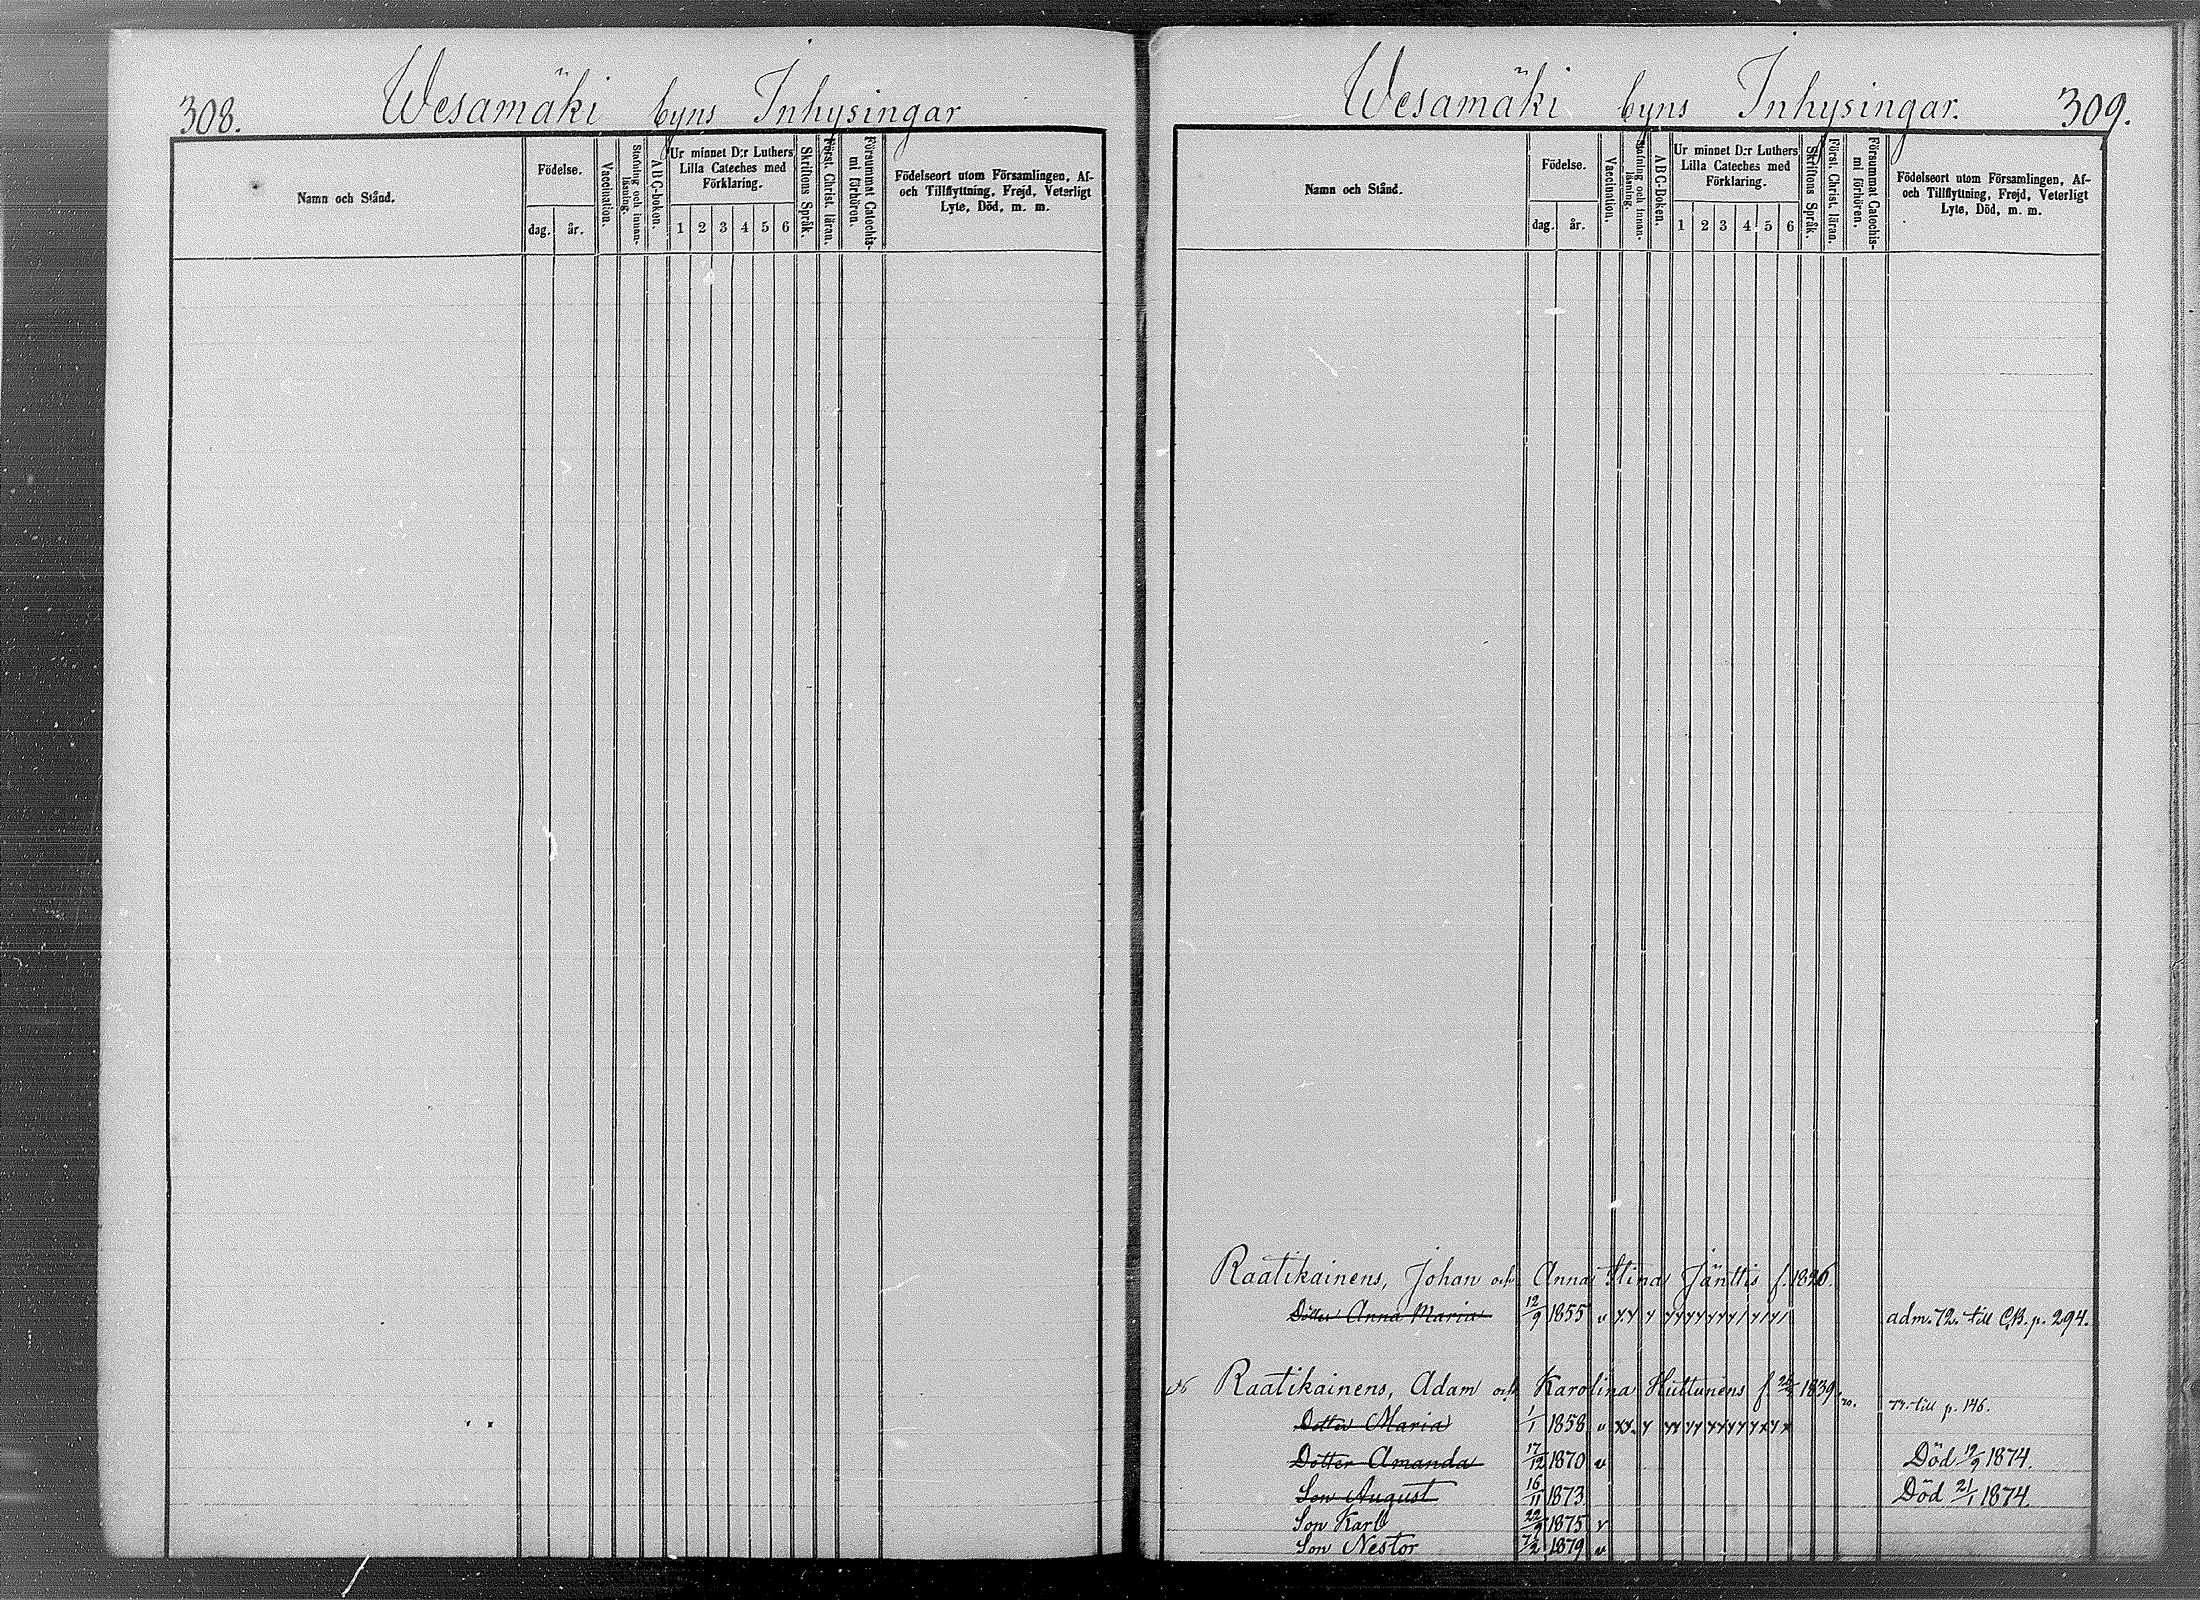 308.
Wesamäki byns Inhysingar
Namn och Stånd.
Födelse.
dag.
år.
Vaccination.
Stafning och innan-
läsning.
A B C-boken.
Ur minnet D:r Luthers
Lilla Cateches med
Förklaring.
1 2 3 4 5 6
Skriftens Språk.
Först. Christ. läran.
Försummat Catechis-
mi förhören.
Födelseort utom Församlingen, Af-
och Tillflyttning, Frejd, Veterligt
Lyte, Död, m. m.
Wesamäki byns Inhysingar.
309.
Namn och Stånd.
Födelse.
dag.
år.
Vaccination.
Stafning och innan-
läsning.
A B C-Boken.
Ur minnet D:r Luthers
Lilla Cateches med
Förklaring.
1 2 3 4 5 6
Skriftens Språk.
Först. Christ. läran.
Försummat Catechis-
mi förhören.
Födelseort utom Församlingen, Af-
och Tillflyttning, Frejd, Veterligt
Lyte, Död, m. m.
Raatikainens, Johan och Anna Stina Jänttis f. 1826.
Dotter Anna Maria 12/9 1855 v adm. 72. till CB. p. 294.
Raatikainens, Adam och Karolina Huttunens f. 1839
Tr. till p. 146.
Dotter Maria 1/1 1858 v
Dotter Amanda 17/12 1870 v Död 12/9 1874.
Son August 16/11 1873 Död 21/1 1874.
Son Karl 22/9 1875 v
Son Nestor 7/2 1879 v